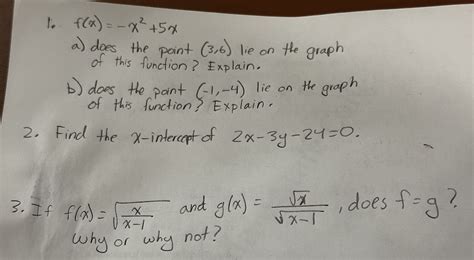 1. f(x) = -x² + 5x
a) does the point (3,6) lie on the graph
of this function? Explain.
b) does the point (-1,-4) lie on the graph
of this function? Explain.
2. Find the x-intercept of 2x-3y-24=0.
3. If f(x) = √(x/(x-1)) and g(x) = √x/√(x-1), does f=g?
Why or why not?